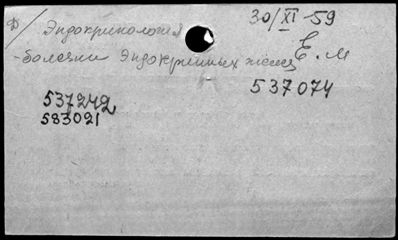 Д/ Эндокринология 30/XI-59
-болезни эндокринных желез Е.М
537074
537242
583021